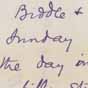 Biddle &
Sunday
the day in